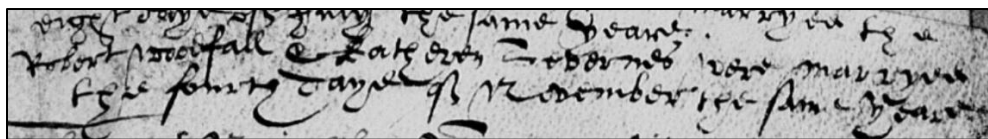 eight daye of July the same yeare. marryed the
Robert Woodfall & Katheren Severnes were marryed
the fourth daye of November the same yeare